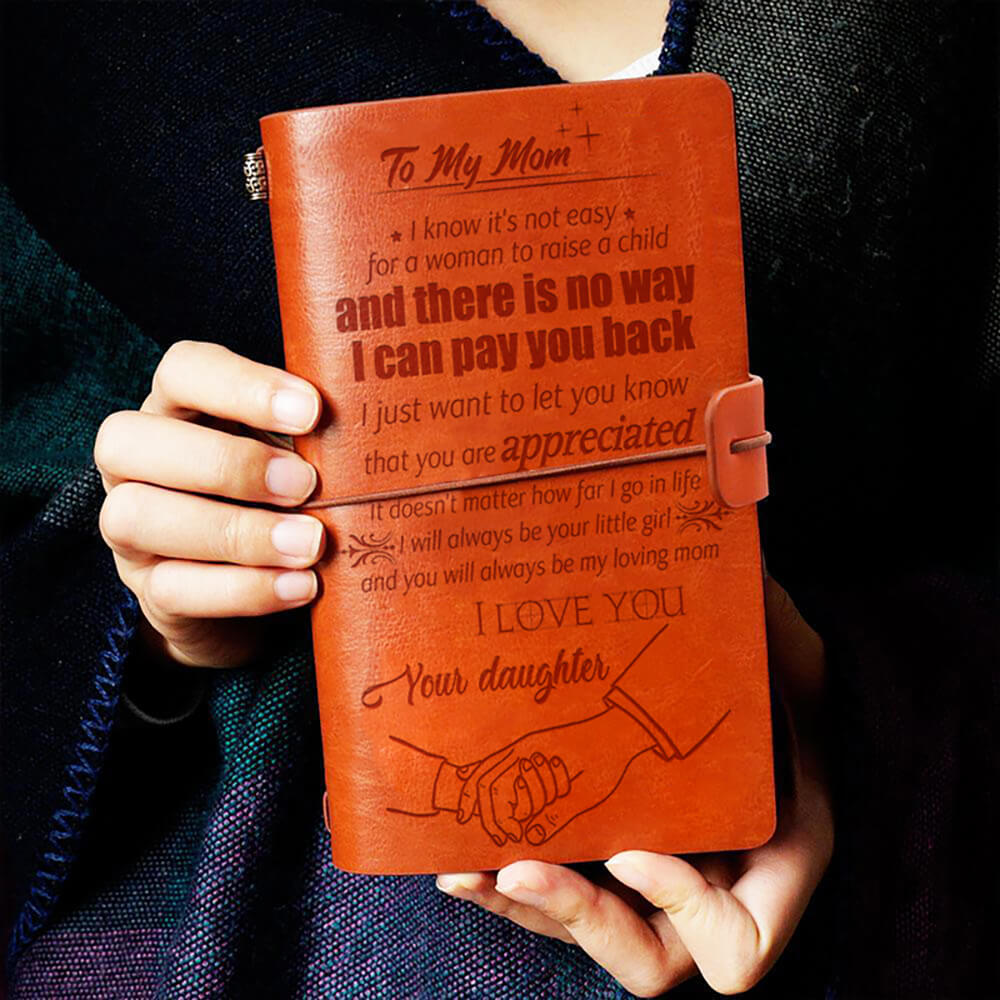 To My Mom
I know it's not easy
for a woman to raise a child
and there is no way
I can pay you back
I just want to let you know
that you are appreciated
It doesn't matter how far I go in life
I will always be your little girl
and you will always be my loving mom
I LOVE YOU
Your daughter